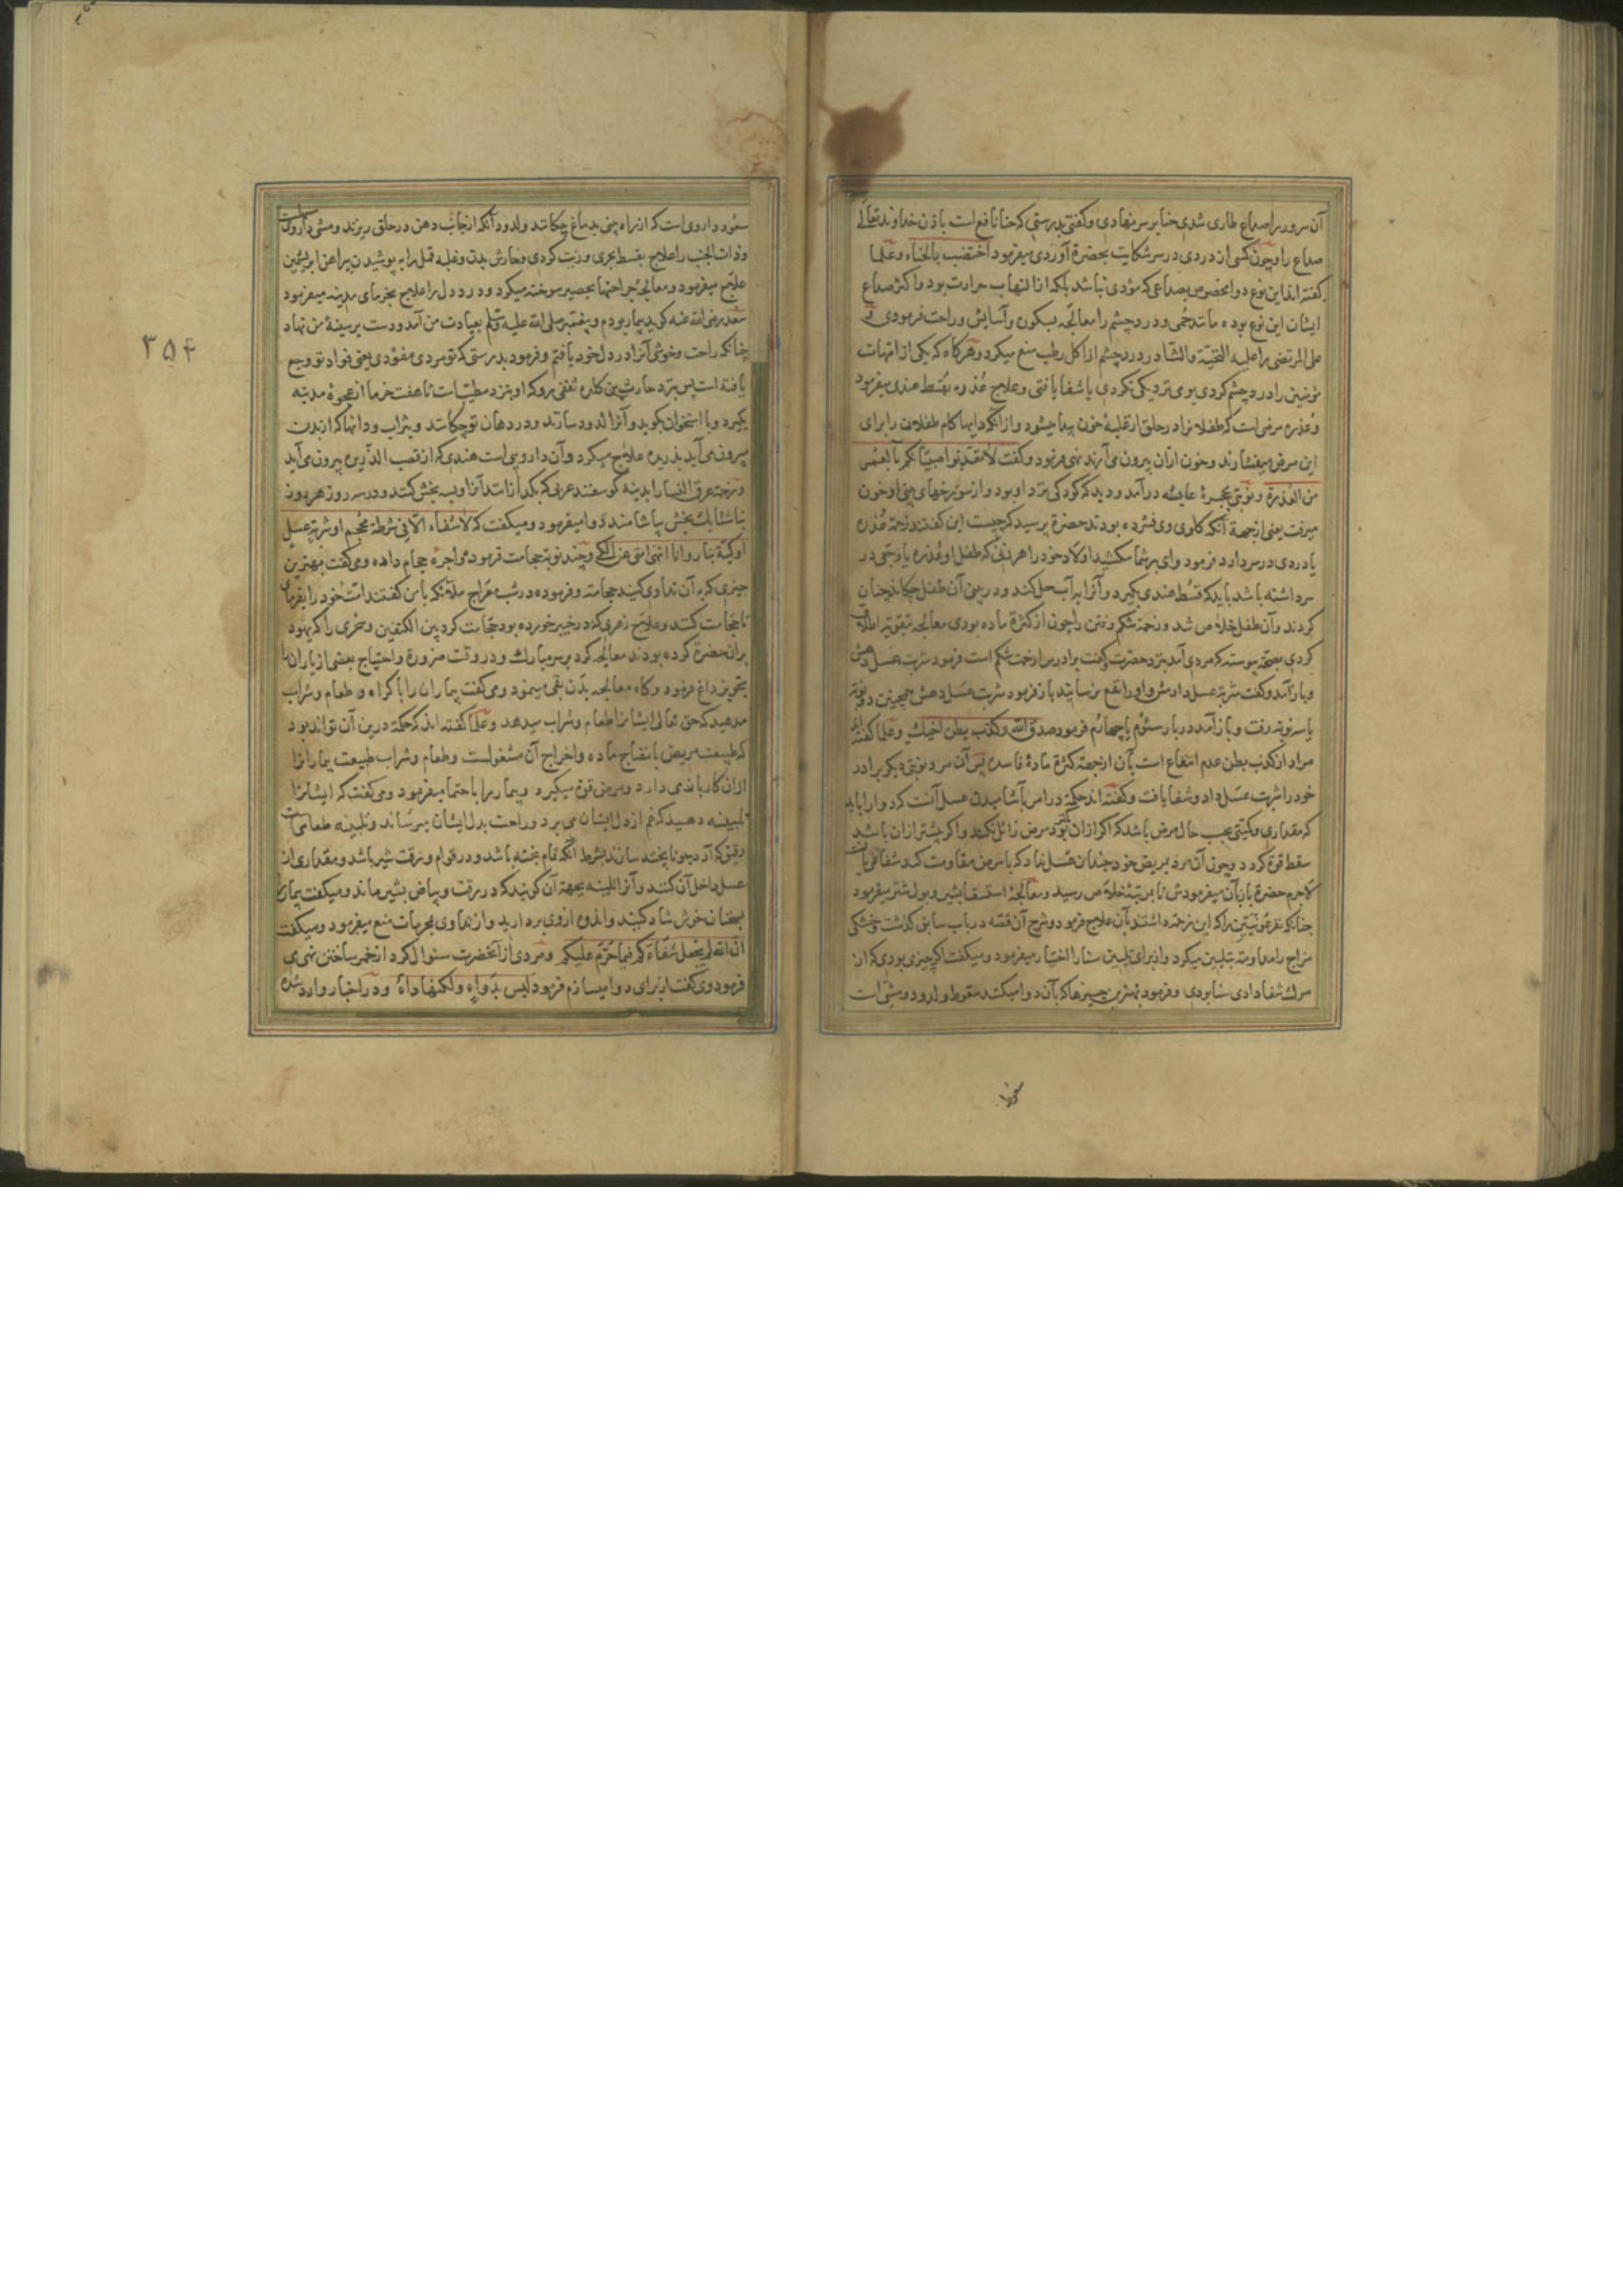 آن سرور را صداع طاری شدی حنا بر سر نهادی و کفتی بدرستی که حنا نافع است باذن خداوند تعالی
صداع را و چون کسی از دردی در سر شکایت بحضرة آوردی میفرمود اختضب بالحناء و علما
کفته اند این نوع دوا مخصوص بصداعی که مؤدی نباشد بلکه از التهاب حرارت بود و اکثر صداع
ایشان این نوع بوده مانند حمی و درد چشم را معالجه بسکون و آسایش و راحت فرمودی و
علی المرتضی را علیه التحیة و الثنا در درد چشم از اکل رطب منع میکرد و هرکاه که یکی از امهات
مؤمنین را درد چشم کردی بوی نزدیکی نکردی یا شفا یافتی و علاج عذره بقسط هندی میفرمود
و عذره مرضی است که طفلانرا در حلق از غلبه خون پیدا میشود و از آنکه دایها کام طفلان را برای
این مرض میفشارند و خون ازان بیرون می آرند نهی فرمود و کفت لا تعذبوا صبیانکم بالغمز
من العذرة و نوبتی بحجرة عایشه درآمد و دید که کودکی نزد او بود و از سوراخهای بینی او خون
میرفت یعنی ازجهة آنکه کلوی وی فشرده بودند حضرة پرسید که چیست این کفتند زحمة عذره
یا دردی در سر دارد فرمود وای بر شما مکشید اولاد خود را هر زنی که طفل او عذره یا وجعی در
سر داشته باشد باید که قسط هندی بکیرد و آنرا به آب حل کند و در بینی آن طفل چکاند چنان
کردند و آن طفل خلاص شد و زحمة شکم رفتن را چون از کثرة ماده بودی معالجه بتقویة اطلاق
کردی بصحة پیوسته که مردی آمد نزد حضرت و کفت برادر مرا زحمت شکم است فرمود شربت عسل دهش
و باز آمد و کفت شربة عسل دادمش و او را نفع نرسانید باز فرمود شربت عسل دهش همچنین دو نوبة
یا سه نوبة رفت و باز آمد در بار سئوم یا چهارم فرمود صدق الله و کذب بطن اخیک و علما کفته اند
مراد از کذب بطن عدم انتفاع است بآن ازجهة کثرة مادهٔ فاسده پس آن مرد نوبتی دیکر برادر
خود را شربت عسل داد و شفا یافت و کفته اند حکمة در امر بآشامیدن عسل آنست که دوا را باید
که مقداری و کیتی بحسب حال مرض باشد که اکر ازان کمتر بود مرض زائل نکند و اکر بیشتر ازان باشد
سقط قوة کردد و چون آن مرد بمریض خود چندان عسل نداد که با مرض مقاومت کند شفا نمی یافت
لاجرم حضرة بازبآن میفرمودش تا بمرتبهٔ خلاص رسید و معالجهٔ استسقا بشیر و بول شتر میفرمود
چنانکه نفر عرنیین را که این زحمة داشتند بآن علاج فرمود و شرح آن قصه در باب سابق کذشت و خشکی
مزاج را مداومة بتلیین میکرد و از برای تلیین سنا را اختیار میفرمود و میکفت اکر چیزی بودی که از
مرک شفا دادی سنا بودی و فرمود بهترین چیزها که بآن دوا میکنند سعوط و لدود و مشی است
سعوط
سعود داروی است که از راه بینی بدماغ چکانند و لدود آنکه از جانب دهن در حلق ریزند و مشی داروی
و ذات الجنب را علاج بقسط بحری و زیت کردی و خارش بدن و غلبه قمل را به پوشیدن پیراهن ابریشمین
علاج میفرمود و معالجهٔ جراحتها بحصیر سوخته میکرد و درد دل را علاج بخرمای مدینه میفرمود
سعد رضی الله عنه کوید بیمار بودم و پیغمبر صلی الله علیه و سلم بعیادت من آمد و دست بر سینهٔ من نهاد
چنانکه راحت و خوشی آنرا در دل خود یافتم و فرمود بدرستی که تو مردی مفؤدی یعنی فواد تو وجع
یافته است پس نزد حارث بن کلده ثقفی رو که او بنزد مطببات تا هفت خرما از عجوهٔ مدینه
بکیرد و با استخوان بکوبد و آنرا لدود سازند و در دهان تو چکانند و بثراب و دانها که از بدن
بیرون می آید بذریره علاج میکرد و آن دارویی است هندی که از قصب الذریره بیرون می آید
و زحمة عرق النسا را بدنبه کوسفند عربی که بکدازانند آنرا و بسه بخش کنند و در سه روز هر روز
بناشتا یک بخش بیاشامند دوا میفرمود و میکفت که لا شفاء الا فی شرطة محجم او شربة عسل
او کیّة بنار و انا انهی امتی عن الکی و چند نوبة حجامت فرمود و اجرهٔ حجام داده و می کفت بهترین
چیزی که به آن تداوی کنید حجامة و فرموده در شب معراج ملائکه با من کفتند امت خود را بفرمای
تا حجامت کنند و علاج زهری که در خیبر خورده بود حجامت کرد بین الکتفین و سحری را که یهود
بران حضرة کرده بودند معالجه کرد بر سر مبارک و در وقت ضرورة و احتیاج بعضی از یاران را
تجویز داغ فرمود و کاه معالجه بدن بقی مینمود و می کفت بیماران را باکراه و طعام و شراب
مدهید که حق تعالی ایشانرا طعام و شراب میدهد و علما کفته اند که حکمة درین آن تواند بود
که طبیعت مریض بانضاج ماده و اخراج آن مشغولست و طعام و شراب طبیعت بیمار را
ازان کار باز می دارد و مرض قوة میکیرد و بیمار را باحتما میفرمود و می کفت که ایشانرا
تلبینه دهید که غم از دل ایشان می برد و راحت بدل ایشان میرساند و تلبینه طعامی است
رقیق که آرد جو نا پخته سازند بشرط آنکه تمام پخته باشد و در قوام و رقت شیر باشد و مقداری از
عسل داخل آن کنند و آنرا تلبینه بجهة آن کویند که در رقت و بیاض بشیر ماند و میکفت بیمار را
بسخنان خوش شاد کنید و اندوه از وی بردارید و از تداوی بمحرمات منع میفرمود و میکفت
ان الله لم یجعل شفاءکم فیما حرّم علیکم و مردی از آنحضرت سئوال کرد از خمر ساختن نهی
فرمود وی کفت از برای دوا میسازم فرمود لیس بدواءٍ ولکنها داءٌ و در اخبار وارد شده
۳۵۴